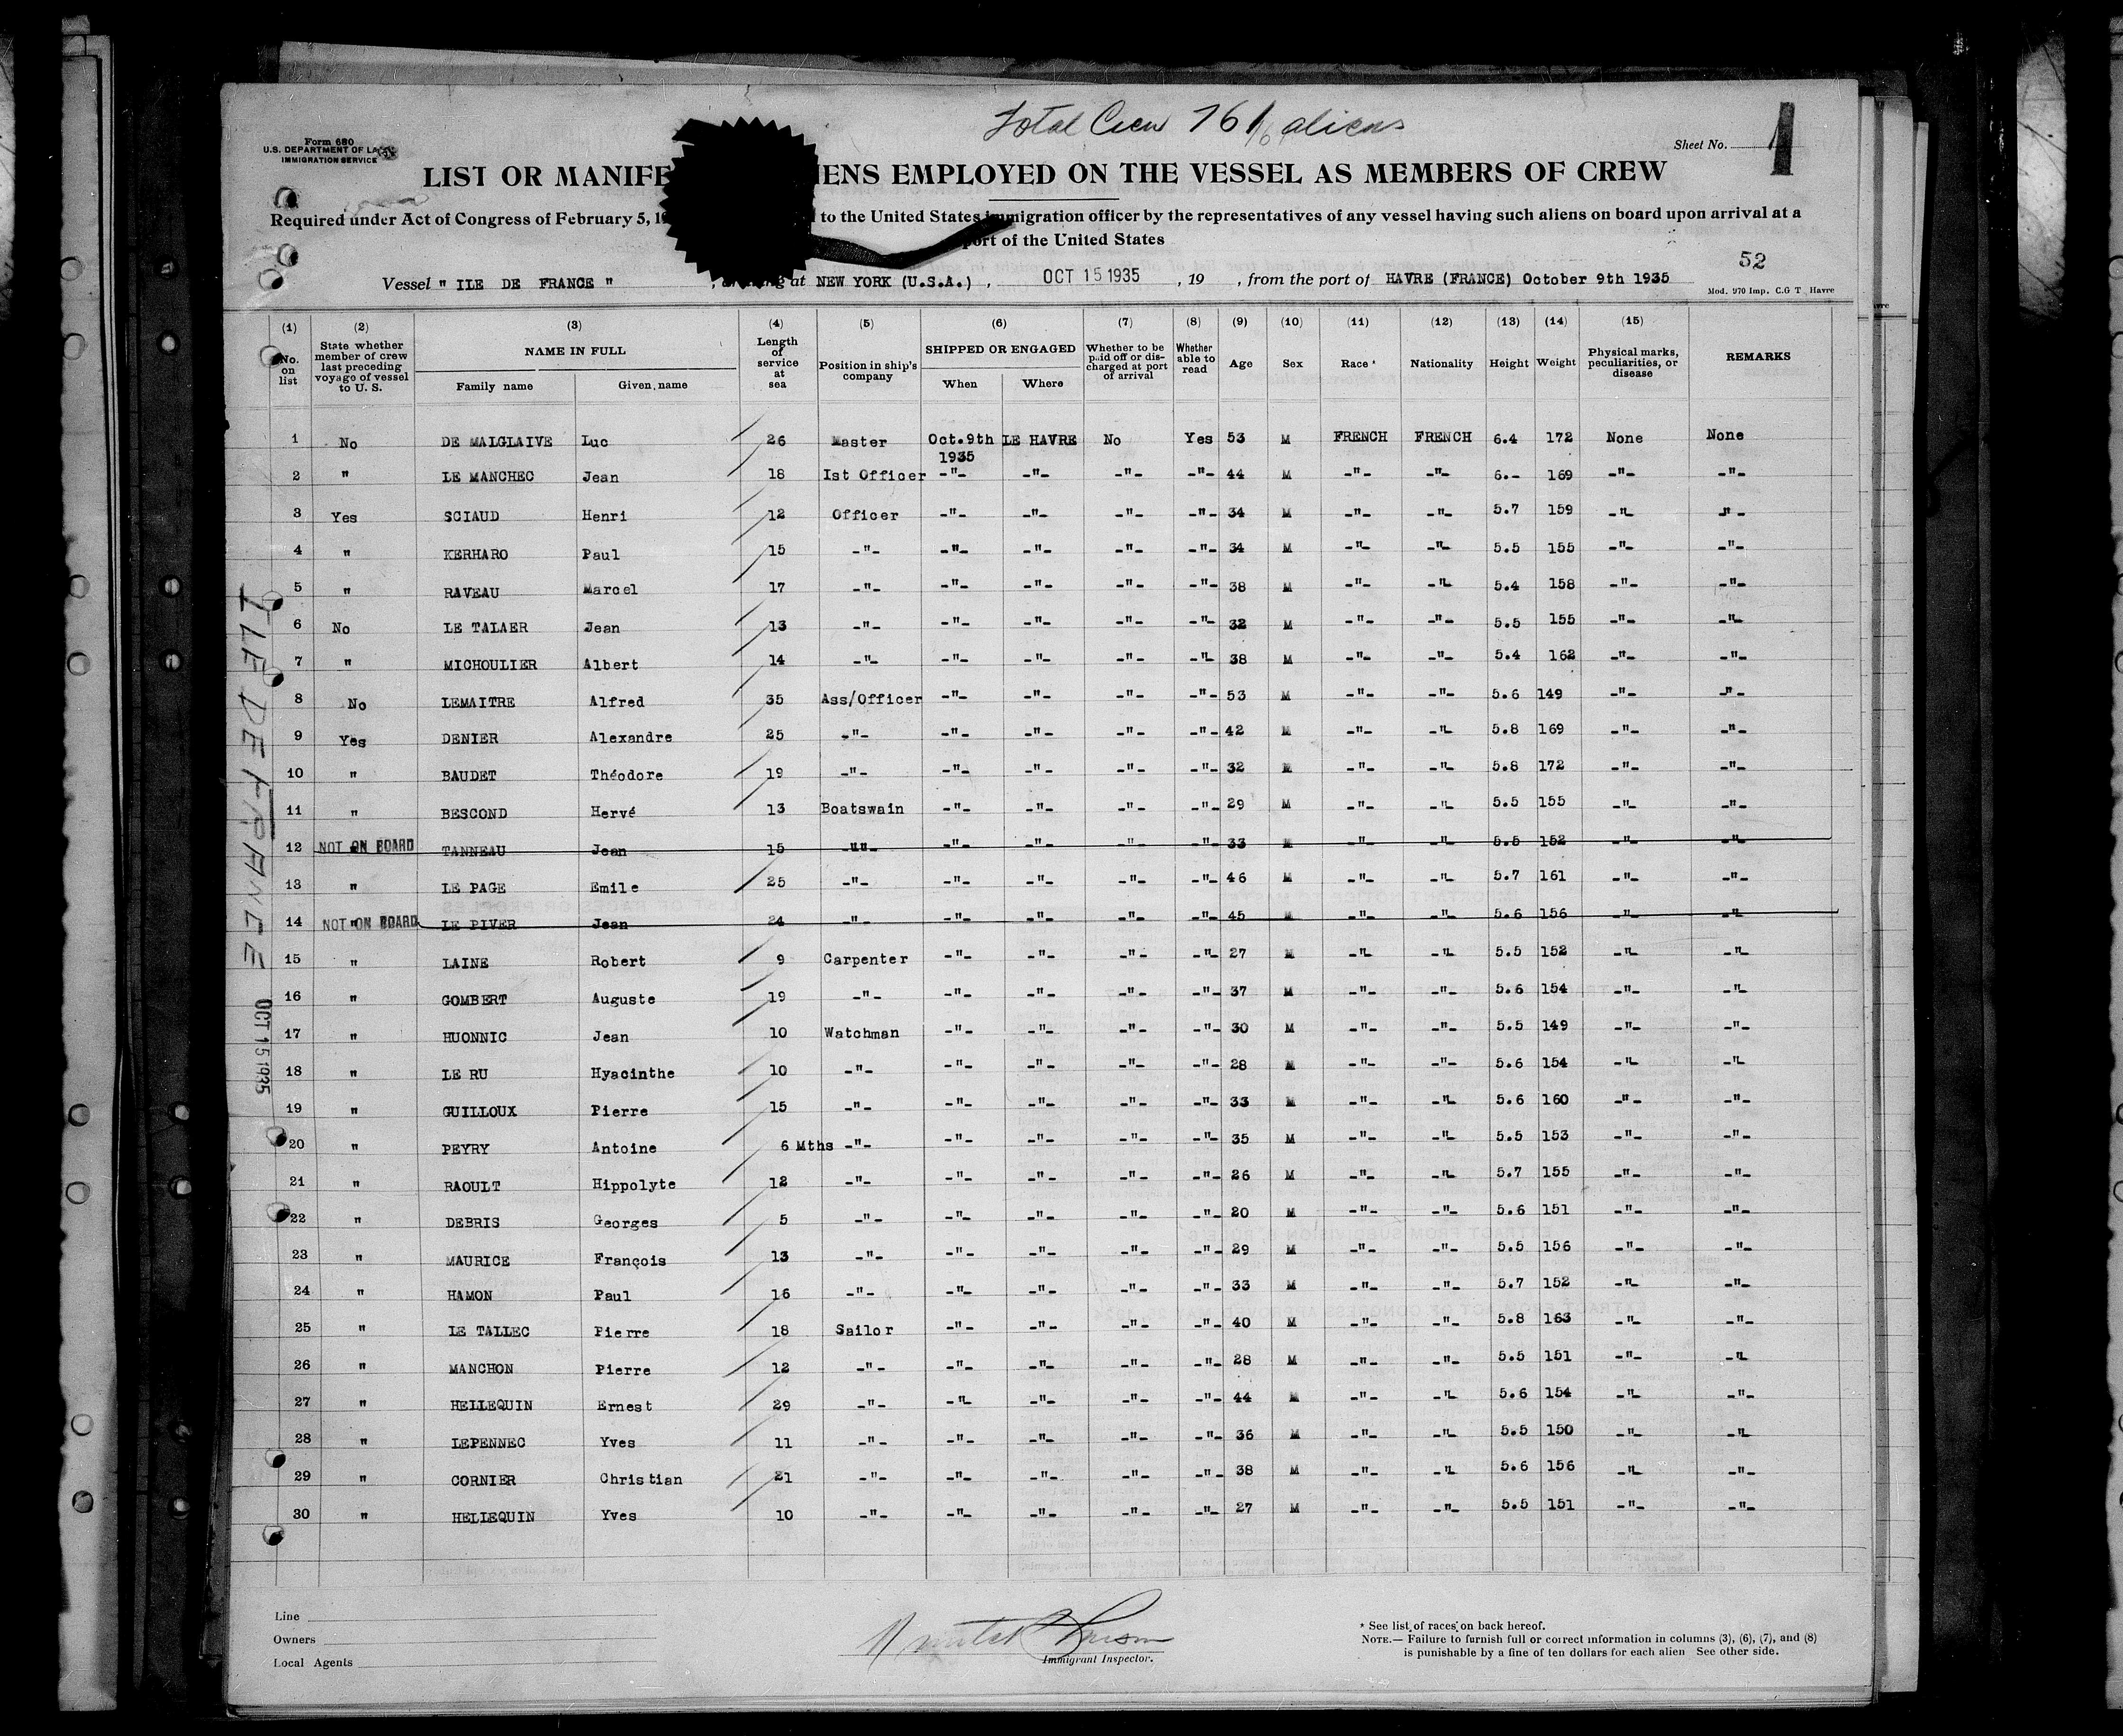 Total Crew 761 aliens
Form 680
U.S. DEPARTMENT OF LA
IMMIGRATION SERVICE
Sheet No. 1
LIST OR MANIFE IENS EMPLOYED ON THE VESSEL AS MEMBERS OF CREW
Required under Act of Congress of February 5, 19 to the United States immigration officer by the representatives of any vessel having such aliens on board upon arrival at a
port of the United States
52
Vessel " ILE DE FRANCE " , at NEW YORK (U.S.A.) , OCT 15 1935 , 19 , from the port of HAVRE (FRANCE) October 9th 1935
Mod. 970 Imp. C.G T Havre
(1) (2) (3) (4) (5) (6) (7) (8) (9) (10) (11) (12) (13) (14) (15)
No. on list State whether member of crew last preceding voyage of vessel to U. S. NAME IN FULL Family name Given name Length of service at sea Position in ship's company SHIPPED OR ENGAGED When Where Whether to be paid off or discharged at port of arrival Whether able to read Age Sex Race * Nationality Height Weight Physical marks, peculiarities, or disease REMARKS
1 No DE MALGLAIVE Luc 26 Master Oct.9th 1935 LE HAVRE No Yes 53 M FRENCH FRENCH 6.4 172 None None
2 " LE MANCHEC Jean 18 Ist Officer -"- -"- -"- -"- 44 M -"- -"- 6.- 169 -"- -"-
3 Yes SCIAUD Henri 12 Officer -"- -"- -"- -"- 34 M -"- -"- 5.7 159 -"- -"-
4 " KERHARO Paul 15 -"- -"- -"- -"- -"- 34 M -"- -"- 5.5 155 -"- -"-
5 " RAVEAU Marcel 17 -"- -"- -"- -"- -"- 38 M -"- -"- 5.4 158 -"- -"-
6 No LE TALAER Jean 13 -"- -"- -"- -"- -"- 32 M -"- -"- 5.5 155 -"- -"-
7 " MICHOULIER Albert 14 -"- -"- -"- -"- -"- 38 M -"- -"- 5.4 162 -"- -"-
8 No LEMAITRE Alfred 35 Ass/Officer -"- -"- -"- -"- 53 M -"- -"- 5.6 149 -"- -"-
9 Yes DENIER Alexandre 25 -"- -"- -"- -"- -"- 42 M -"- -"- 5.8 169 -"- -"-
10 " BAUDET Théodore 19 -"- -"- -"- -"- -"- 32 M -"- -"- 5.8 172 -"- -"-
11 " BESCOND Hervé 13 Boatswain -"- -"- -"- -"- 29 M -"- -"- 5.5 155 -"- -"-
12 NOT ON BOARD TANNEAU Jean 15 -"- -"- -"- -"- -"- 33 M -"- -"- 5.5 152 -"- -"-
13 " LE PAGE Emile 25 -"- -"- -"- -"- -"- 46 M -"- -"- 5.7 161 -"- -"-
14 NOT ON BOARD LE PIVER Jean 24 -"- -"- -"- -"- -"- 45 M -"- -"- 5.6 156 -"- -"-
15 " LAINE Robert 9 Carpenter -"- -"- -"- -"- 27 M -"- -"- 5.5 152 -"- -"-
16 " GOMBERT Auguste 19 -"- -"- -"- -"- -"- 37 M -"- -"- 5.6 154 -"- -"-
17 " HUONNIC Jean 10 Watchman -"- -"- -"- -"- 30 M -"- -"- 5.5 149 -"- -"-
18 " LE RU Hyacinthe 10 -"- -"- -"- -"- -"- 28 M -"- -"- 5.6 154 -"- -"-
19 " GUILLOUX Pierre 15 -"- -"- -"- -"- -"- 33 M -"- -"- 5.6 160 -"- -"-
20 " PEYRY Antoine 6 Mths -"- -"- -"- -"- -"- 35 M -"- -"- 5.5 153 -"- -"-
21 " RAOULT Hippolyte 12 -"- -"- -"- -"- -"- 26 M -"- -"- 5.7 155 -"- -"-
22 " DEBRIS Georges 5 -"- -"- -"- -"- -"- 20 M -"- -"- 5.6 151 -"- -"-
23 " MAURICE François 13 -"- -"- -"- -"- -"- 29 M -"- -"- 5.5 156 -"- -"-
24 " HAMON Paul 16 -"- -"- -"- -"- -"- 33 M -"- -"- 5.7 152 -"- -"-
25 " LE TALLEC Pierre 18 Sailor -"- -"- -"- -"- 40 M -"- -"- 5.8 163 -"- -"-
26 " MANCHON Pierre 12 -"- -"- -"- -"- -"- 28 M -"- -"- 5.5 151 -"- -"-
27 " HELLEQUIN Ernest 29 -"- -"- -"- -"- -"- 44 M -"- -"- 5.6 154 -"- -"-
28 " LEPENNEC Yves 11 -"- -"- -"- -"- -"- 36 M -"- -"- 5.5 150 -"- -"-
29 " CORNIER Christian 21 -"- -"- -"- -"- -"- 38 M -"- -"- 5.6 156 -"- -"-
30 " HELLEQUIN Yves 10 -"- -"- -"- -"- -"- 27 M -"- -"- 5.5 151 -"- -"-
ILE DE FRANCE OCT 15 1935
Line
Owners
Local Agents
Immigrant Inspector.
* See list of races on back hereof.
NOTE.— Failure to furnish full or correct information in columns (3), (6), (7), and (8)
is punishable by a fine of ten dollars for each alien See other side.